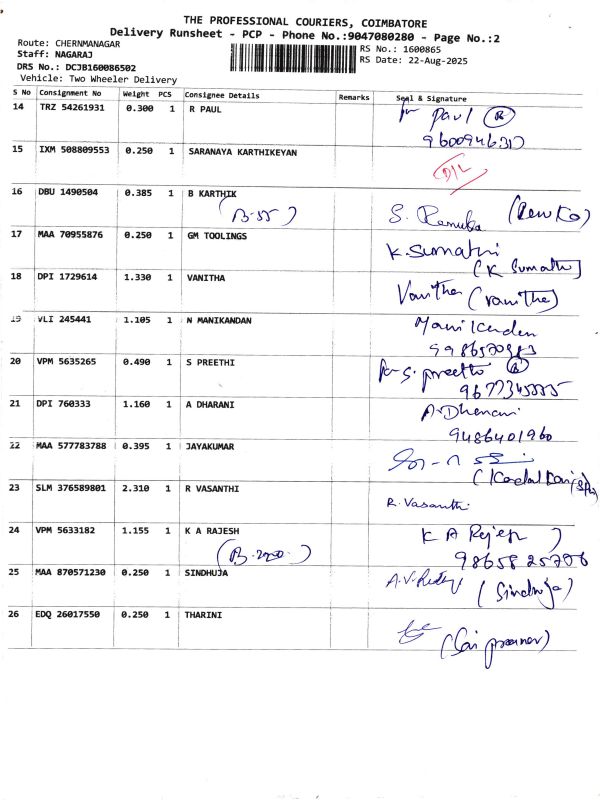 THE PROFESSIONAL COURIERS, COIMBATORE
Delivery Runsheet - PCP - Phone No.:9047080280 - Page No.:2
Route: CHERNMANAGAR
Staff: NAGARAJ
DRS No.: DCJB160086502
Vehicle: Two Wheeler Delivery
RS No.: 1600865
RS Date: 22-Aug-2025
S No Consignment No Weight PCS Consignee Details Remarks Seal & Signature
14 TRZ 54261931 0.300 1 R PAUL for Paul (R)
9600946313
15 IXM 508809553 0.250 1 SARANAYA KARTHIKEYAN
D/L
16 DBU 1490504 0.385 1 B KARTHIK
(B-55) S. Renuka (Renuka)
17 MAA 70955876 0.250 1 GM TOOLINGS K. Sumathi
(K Sumathi)
18 DPI 1729614 1.330 1 VANITHA Vanitha (Vanitha)
19 VLI 245441 1.105 1 N MANIKANDAN Manikanden
20 VPM 5635265 0.490 1 S PREETHI for S. Preethi (R)
9677345555
21 DPI 760333 1.160 1 A DHARANI A. Dharani
9486401960
22 MAA 577783788 0.395 1 JAYAKUMAR
23 SLM 376589801 2.310 1 R VASANTHI R. Vasanthi
24 VPM 5633182 1.155 1 K A RAJESH K A Rajesh
9865825706
25 MAA 870571230 0.250 1 SINDHUJA (Sindhuja)
26 EDQ 26017550 0.250 1 THARINI